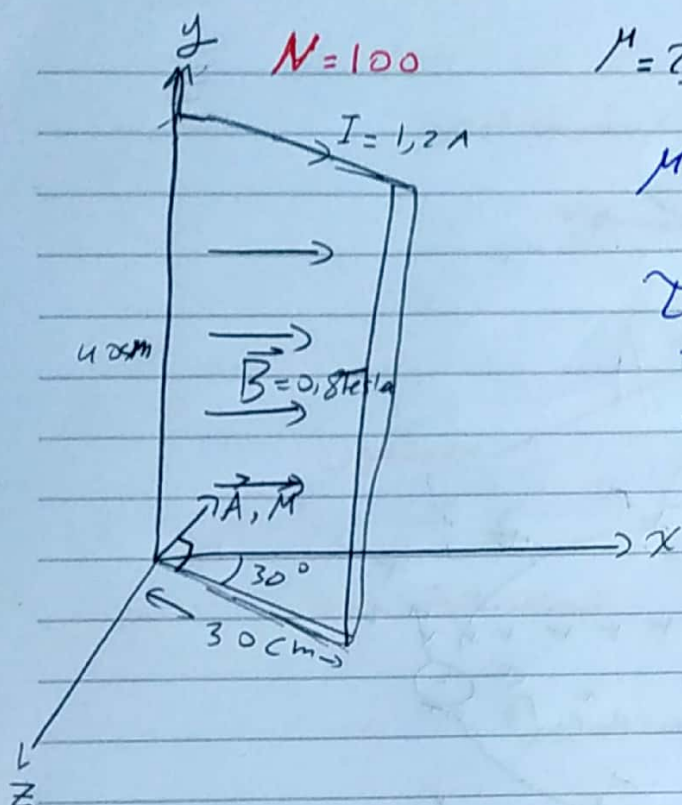 y
N=100
μ=
I=1,2A
μ
τ
40cm
B=0,8Tesla
A, M
x
30°
30cm
z